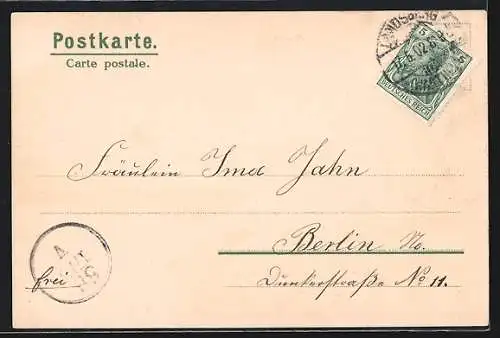 Postkarte.
Carte postale.
5
DEUTSCHES REICH
Fräulein Ima Jahn
Berlin No.
frei
Dunkerstraße No 11.